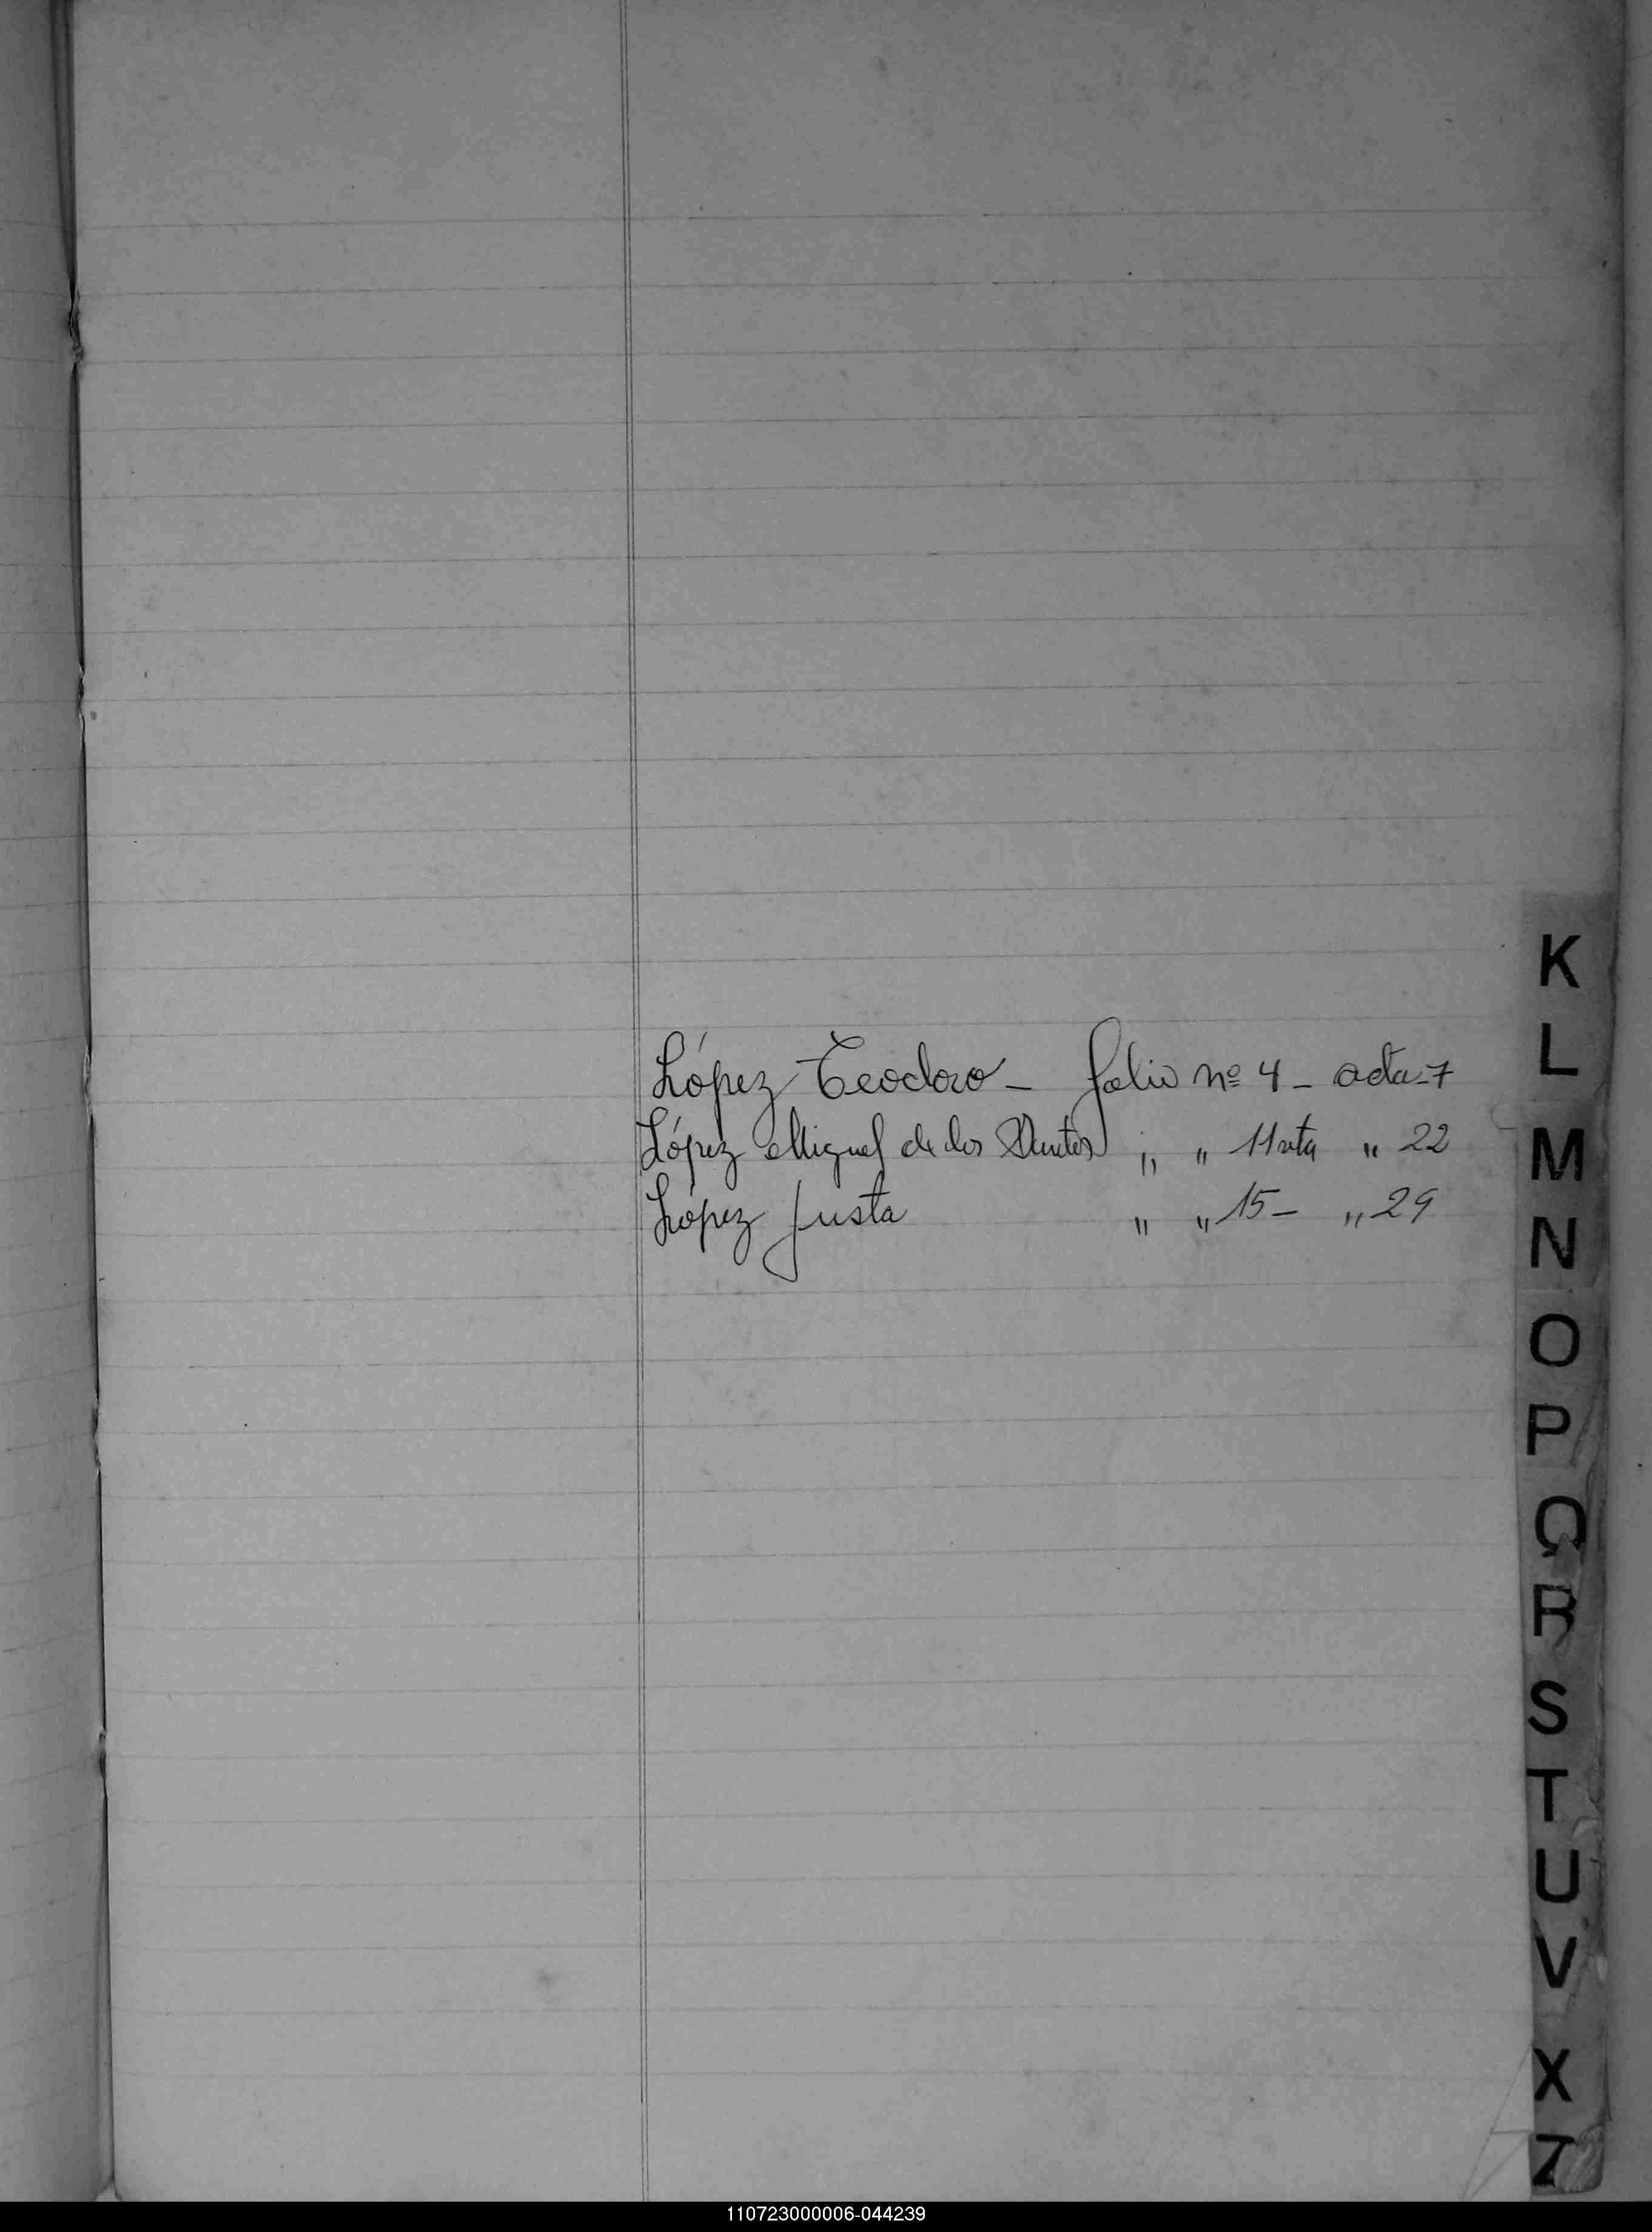 López Teodoro - folio nº 4 - acta - 7
López Miguel de los Santos " " 11 vta " 22
López Justa " " 15 - " 29
K
L
M
N
O
P
Q
R
S
T
U
V
X
Z
110723000006-044239